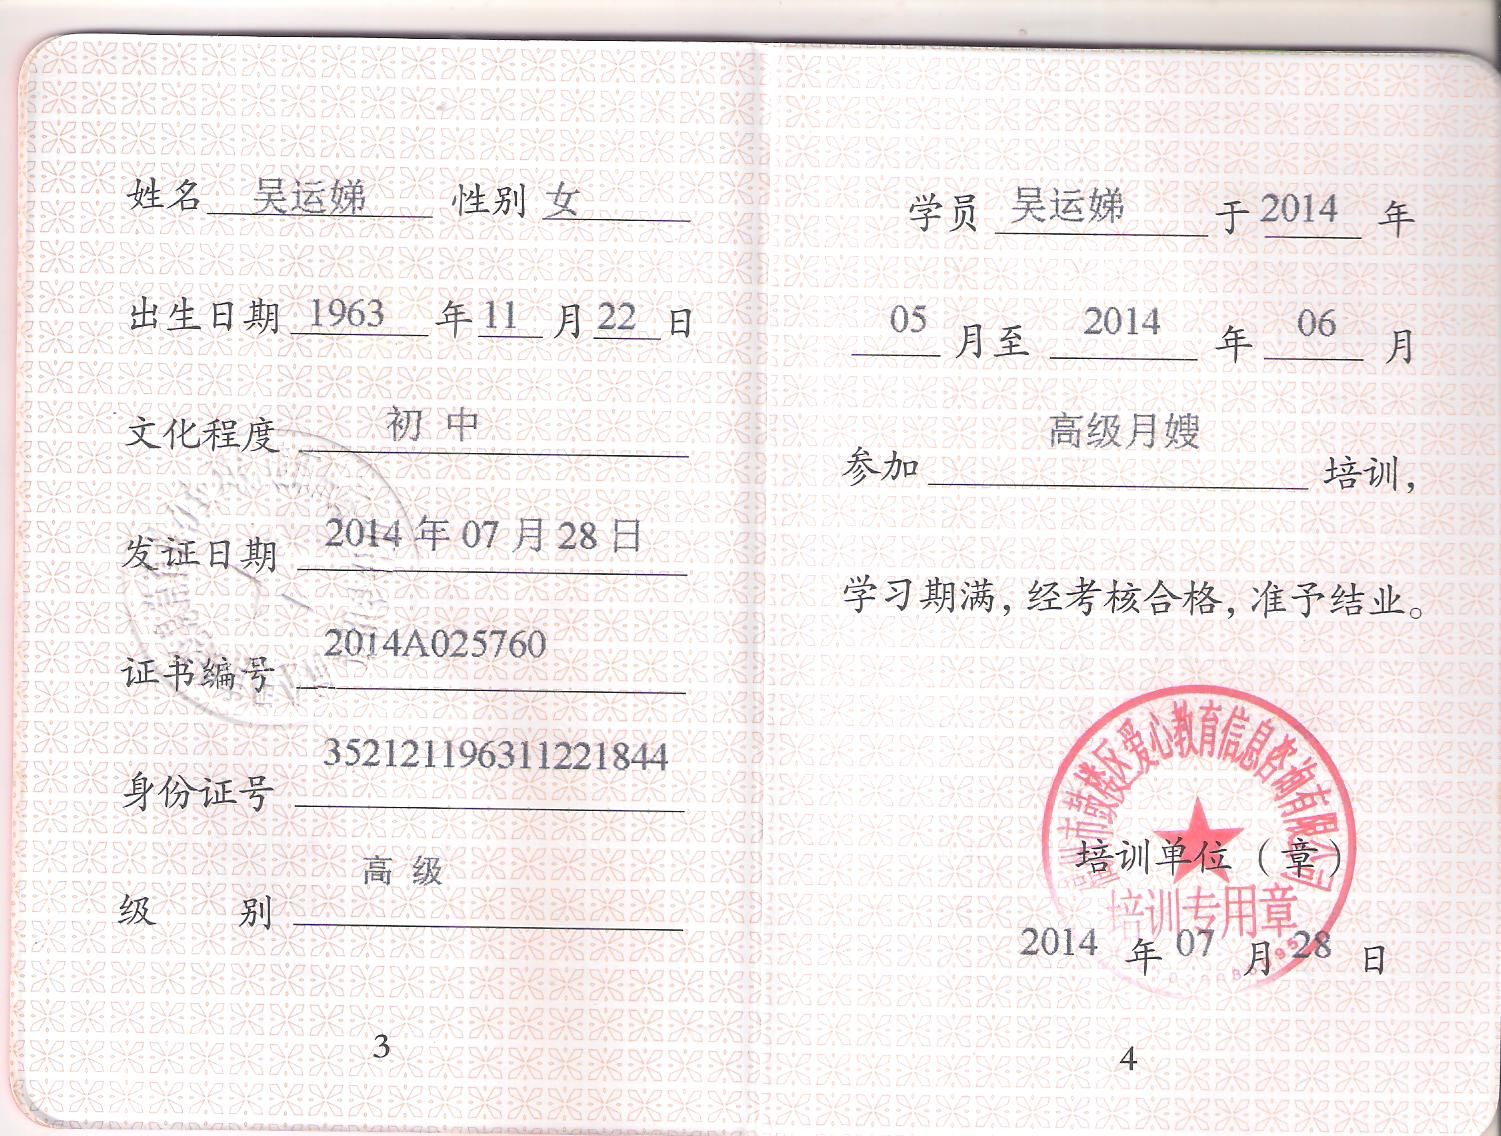 姓名 吴运娣 性别 女
出生日期 1963 年 11 月 22 日
文化程度 初中
发证日期 2014年07月28日
证书编号 2014A025760
身份证号 352121196311221844
级 别 高级
3
学员 吴运娣 于 2014 年
05 月至 2014 年 06 月
参加 高级月嫂 培训，
学习期满，经考核合格，准予结业。
福州市鼓楼区爱心教育信息咨询有限公司
培训单位（章）
培训专用章
2014 年 07 月 28 日
4